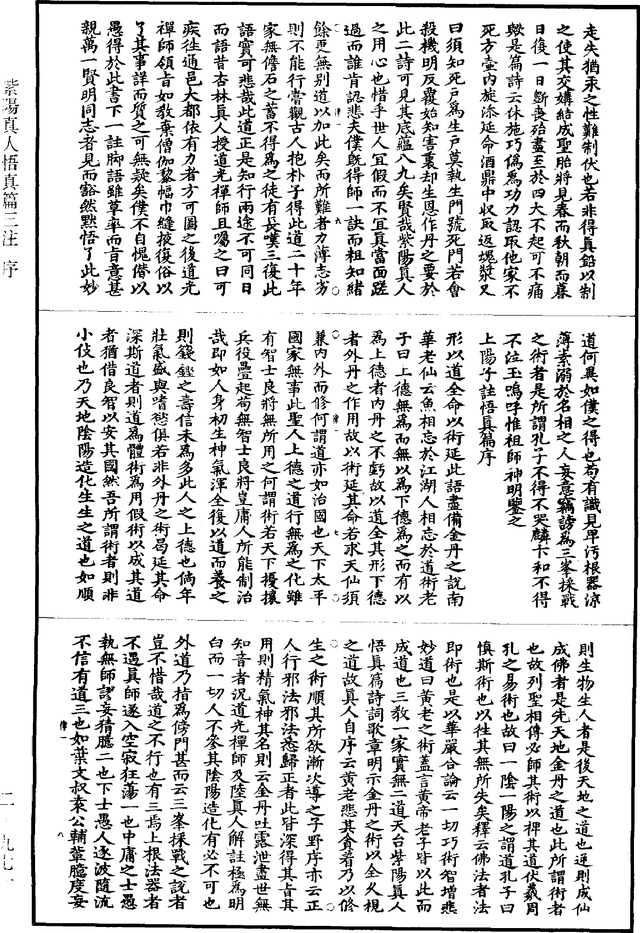 紫陽真人悟真篇三注 序
走失猶汞之性難制伏也若非得真鉛以制
之使其交媾結成聖胎將見春而秋朝而暮
日復一日斷喪殆盡至於四大不起可不痛
歟是篇詩云休施巧偽為功力認取他家不
死方壺內旋添延命酒鼎中收取返魂漿又
曰須知死戶為生戶莫執生門號死門若會
殺機明反覆始知害裏却生恩作丹之要於
此二詩可見其底蘊八九矣賢哉紫陽真人
之用心也惜乎世人宜假而不宜真當面蹉
過而誰肯認悲夫僕既得師一訣而粗知緒
餘更無別道以加此矣而所難者力薄志劣
則不能行嘗觀古人抱朴子得此道二十年
家無儋石之蓄不得為之徒有長嘆三復此
語實可悲哉此道正是知行兩途不可同日
而語昔杏林真人授道光禪師且囑之曰可
疾往通邑大都依有力者方可圖之後道光
禪師領旨如教棄僧伽黎幅巾縫掖復俗以
了其事詳而質之可無疑矣僕不自愧僣以
愚得於此書下一註脚語雖草率而旨意甚
親萬一賢明同志者見而豁然默悟了此妙
道何異如僕之得也苟有識見卑污根器涼
薄素溺於名相之人妄意竊謗為三峯採戰
之術者是所謂孔子不得不哭麟卞和不得
不泣玉嗚呼惟祖師神明鑒之
上陽子註悟真篇序
形以道全命以術延此語盡備金丹之說南
華老仙云魚相忘於江湖人相忘於道術老
子曰上德無為而無以為下德為之而有以
為上德者內丹之不虧故以道全其形下德
者外丹之作用故以術延其命若求天仙須
兼內外而修何謂道亦如治國也天下太平
國家無事此聖人上德之道行無為之化雖
有智士良將無所用之何謂術若天下擾攘
兵役疊起苟無智士良將豈庸人所能制治
哉即如人身初生神氣渾全復以道而養之
則籛鏗之壽信未為多此人之上德也倘年
壯氣盛與嗜慾俱若非外丹之術曷延其命
深斯道者則道為體術為用假術以成其道
者猶借良智以安其國然吾所謂術者則非
小伎也乃天地陰陽造化生生之道也如順
則生物生人者是後天地之道也逆則成仙
成佛者是先天地金丹之道也此所謂術者
也故列聖相傳必師其術以裨其道伏羲周
孔之易術也故曰一陰一陽之謂道孔子曰
慎斯術也以往其無所失矣釋云佛法者法
即術也是以華嚴合論云一切巧術智增悲
妙道曰黃老之術蓋言黃帝老子皆以此而
成道也三教一家實無二道天台紫陽真人
悟真篇詩詞歌章明示金丹之術以全久視
之道故真人自序云黃老悲其貪着乃以修
生之術順其所欲漸次導之子野序亦云正
人行邪法邪法悉歸正者此皆深得其旨其
用則精氣神其名則云金丹吐露泄盡世無
知音者況道光禪師及陸真人解註極為明
白而一切人不參其陰陽造化有必不可也
外道乃指為傍門甚而云三峯採戰之說者
豈不惜哉道之不行也有三焉上根法器者
不遇真師遂入空寂狂蕩一也中庸之士愚
執無師謬妄猜臆二也下士愚人逐波隨流
不信有道三也如葉文叔袁公輔輩臆度妄